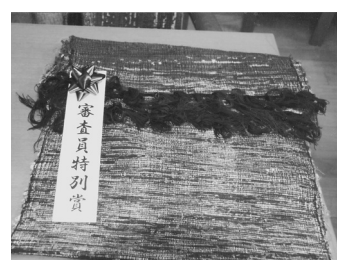 審査員特別賞